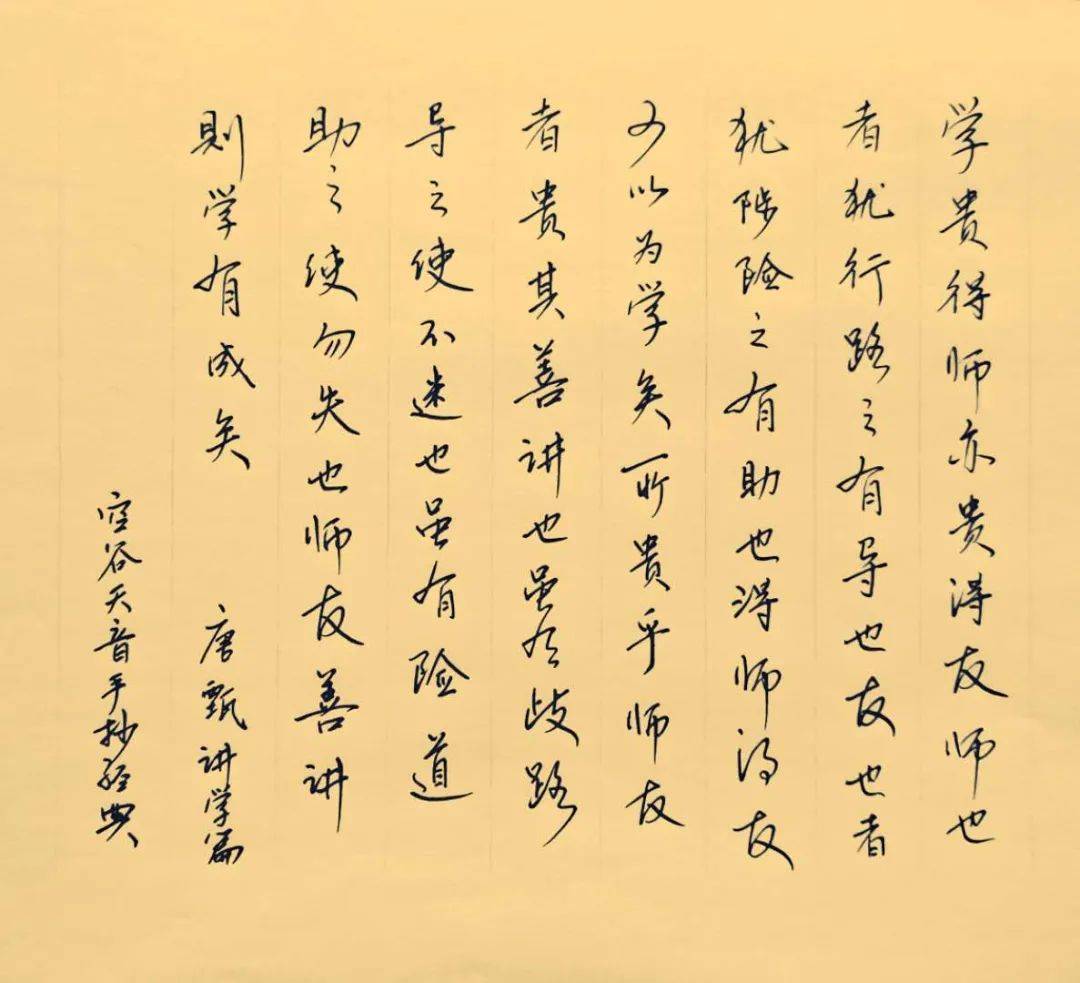 学贵得师亦贵得友师也
者犹行路之有导也友也者
犹陟险之有助也得师得友
可以为学矣所贵乎师友
者贵其善讲也虽有歧路
导之使不迷也虽有险道
助之使勿失也师友善讲
則学有成矣
唐甄讲学篇
空谷天音手抄经典